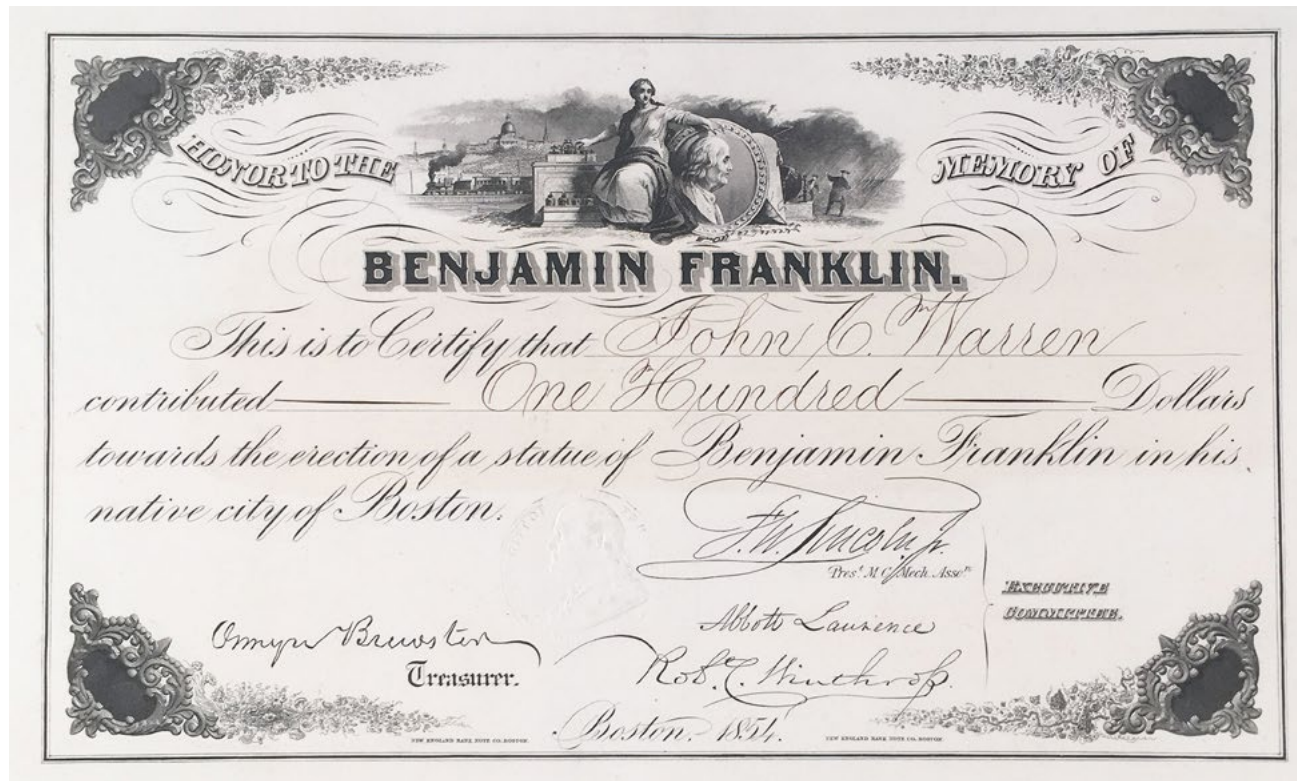 HONOR TO THE MEMORY OF
BENJAMIN FRANKLIN.
This is to Certify that John C. Warren
contributed One Hundred Dollars
towards the erection of a statue of Benjamin Franklin in his
native city of Boston.
F. W. Lincoln Jr.
Pres.t M. C. Mech. Asso.n
EXECUTIVE
COMMITTEE.
Abbott Lawrence
Osmyn Brewster
Treasurer.
Rob. C. Winthrop.
Boston, 1854.
NEW ENGLAND BANK NOTE CO. BOSTON.
NEW ENGLAND BANK NOTE CO. BOSTON.